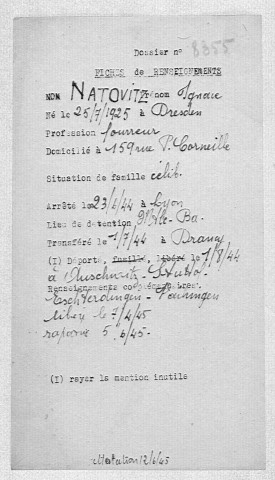 Dossier n° 8355
FICHES de RENSEIGNEMENTS
NOM NATOVITZ Prénom Ignace
Né le 25/7/1925 à Dresden
Profession fourreur
Domicilié à 159 rue P. Corneille
Situation de famille célib.
Arrêté le 23/6/44 à Lyon
Lieu de détention
Transféré le 1/7/44 à Drancy
(I) Déporté, fusillé, libéré le 1/8/44
à Auschwitz - Stutto.
Renseignements complémentaires.
Echterdingen - Vaihingen
libéré le 7/4/45
rapatrié 5.6/45.
(I) rayer la mention inutile
Attestation 12/6/45